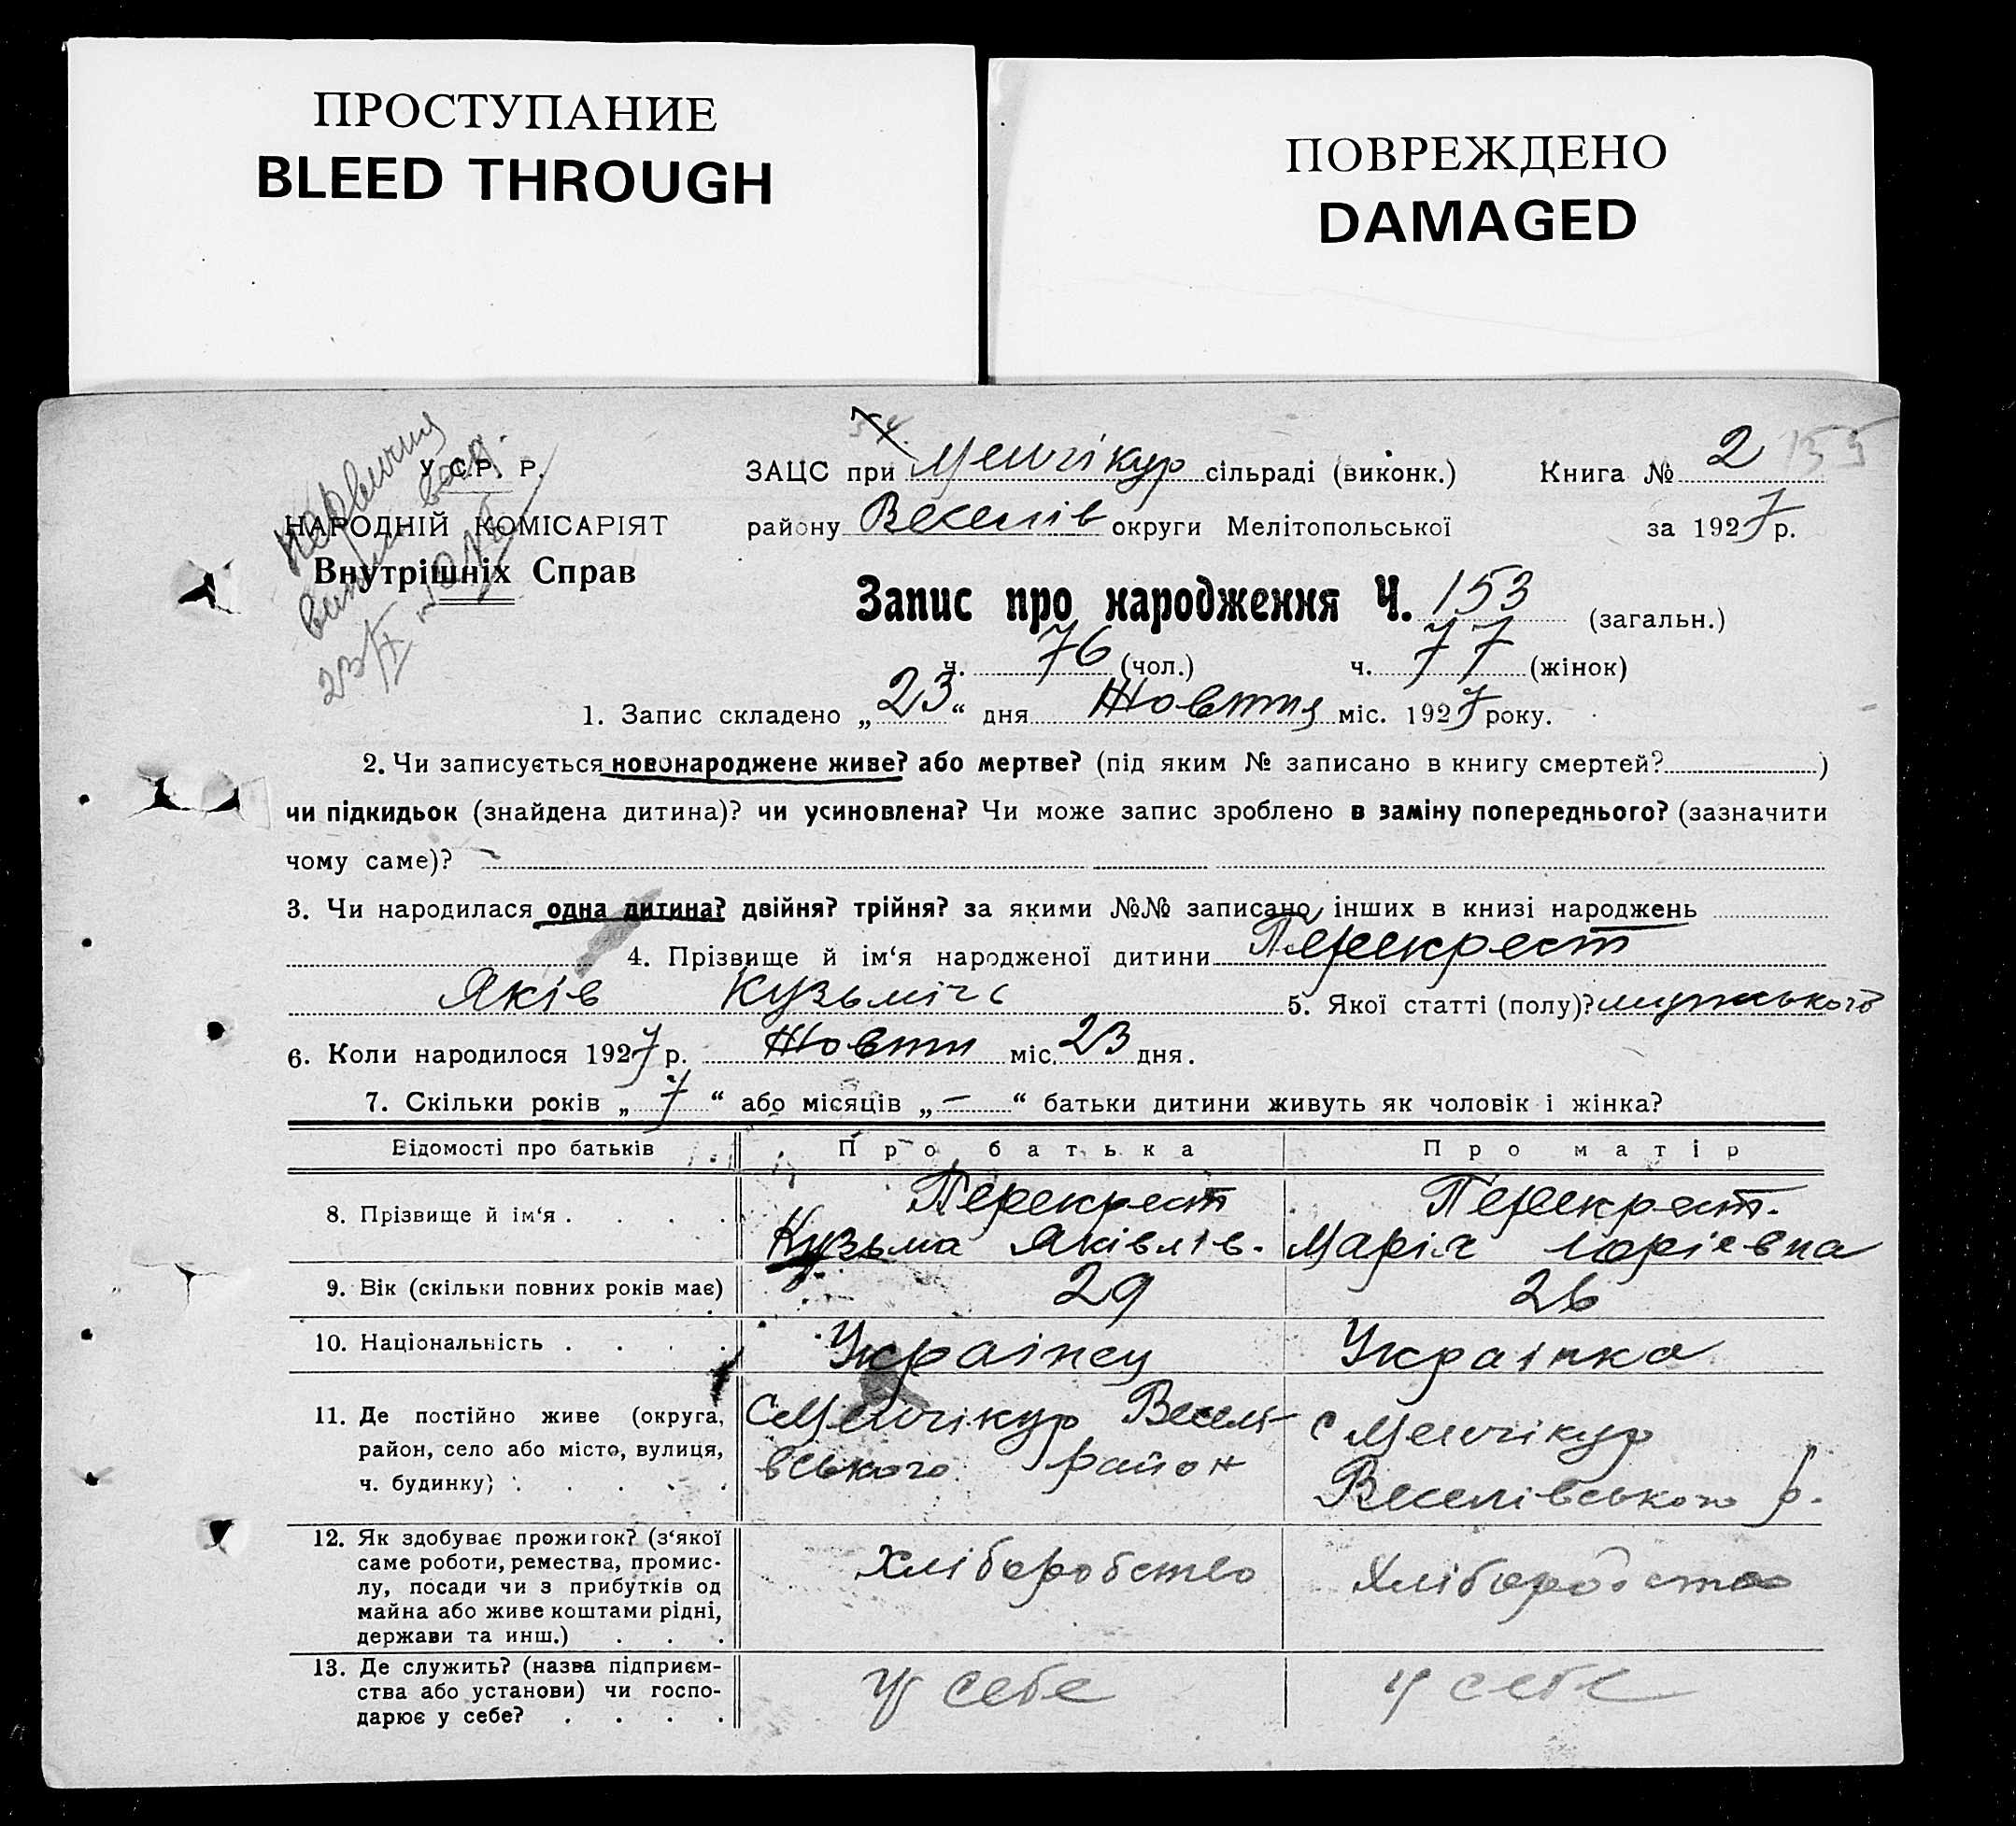 ПРОСТУПАНИЕ
BLEED THROUGH
ПОВРЕЖДЕНО
DAMAGED
У.С.Р.Р.
НАРОДНІЙ КОМІСАРІЯТ
Внутрішніх Справ
23/X
ЗАЦС при Менчікур сільраді (виконк.) Книга № 2 155
району Веселів округи Мелітопольської за 1927 р.
Запис про народження Ч. 153 (загальн.)
ч. 76 (чол.) ч. 77 (жінок)
1. Запис складено „23“ дня Жовтня міс. 1927 року.
2. Чи записується новонароджене живе? або мертве? (під яким № записано в книгу смертей? )
чи підкидьок (знайдена дитина)? чи усиновлена? Чи може запис зроблено в заміну попереднього? (зазначити
чому саме)?
3. Чи народилася одна дитина? двійня? трійня? за якими №№ записано інших в книзі народжень
4. Прізвище й ім‘я народженої дитини Перекрест
Яків Кузьміч 5. Якої статті (полу)? мужського
6. Коли народилося 1927 р. Жовтн міс. 23 дня.
7. Скільки років „7“ або місяців „—“ батьки дитини живуть як чоловік і жінка?
Відомості про батьків Про батька Про матір
8. Прізвище й ім‘я . . . . Перекрест Перекрест.
Кузьма Яківлів. Марія Юріевна
9. Вік (скільки повних років має) 29 26
10. Національність . . . . Украінец Украінка
11. Де постійно живе (округа, район, село або місто, вулиця, ч. будинку) . . . .
с Менчікур Веселі-
вського район
с Менчікур
Веселівського р.
12. Як здобуває прожиток? (з‘якої
саме роботи, ремества, промис-
лу, посади чи з прибутків од
майна або живе коштами рідні,
держави та инш.) . . .
Хліборобство Хліборобство
13. Де служить? (назва підприєм-
ства або установи) чи госпо-
дарює у себе? . . . .
У себе У себе